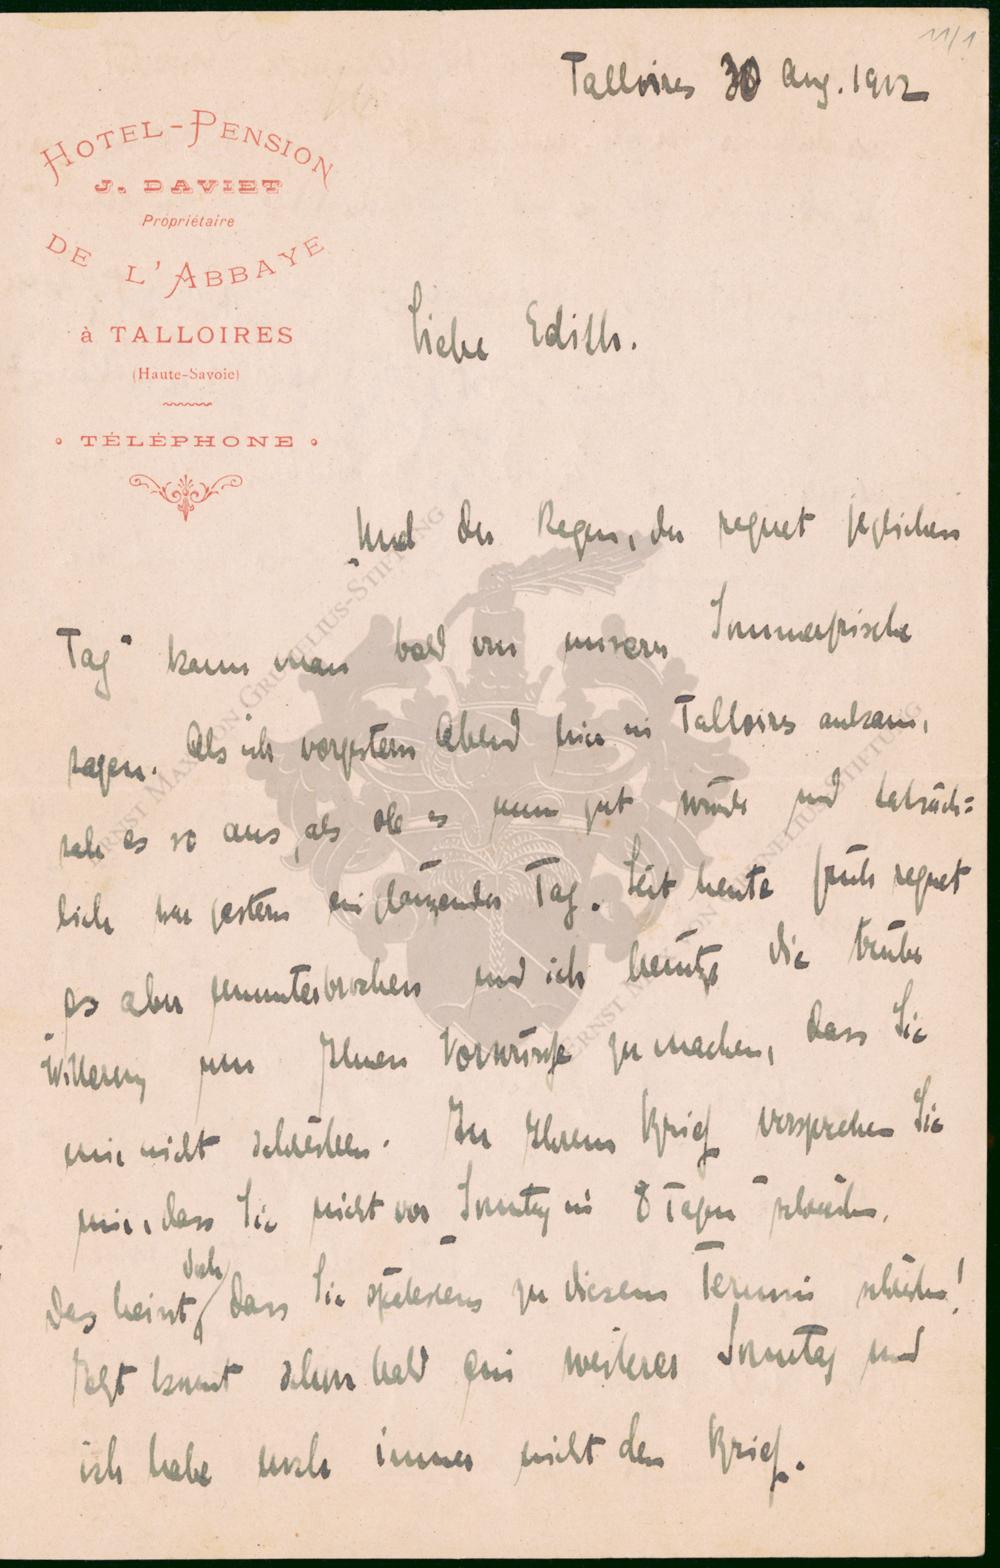 11/1
Talloires 30 Aug. 1912
HOTEL-PENSION
J. DAVIET
Propriétaire
DE L'ABBAYE
à TALLOIRES
(Haute-Savoie)
• TÉLÉPHONE •
Liebe Edith.
„Und der Regen, der regnet jeglichen
Tag" kann man bald von unserer Sommerfrische
sagen. Als ich vorgestern Abend hier in Talloires ankam,
sah es so aus, als ob es nun gut würde und tatsäch=
lich war gestern ein glänzender Tag. Seit heute früh regnet
es aber ununterbrochen und ich benütze die trübe
Witterung um Ihnen Vorwürfe zu machen, dass Sie
mir nicht schreiben. In Ihrem Brief versprechen Sie
mir, dass Sie nicht vor Sonntag in 8 Tagen schreiben.
Das heisst doch, dass Sie spätestens zu diesem Termin schreiben!
Jetzt kommt schon bald ein weiterer Sonntag und
ich habe noch immer nicht den Brief.
ERNST MAX VON GRUNELIUS-STIFTUNG
ERNST MAX VON GRUNELIUS-STIFTUNG